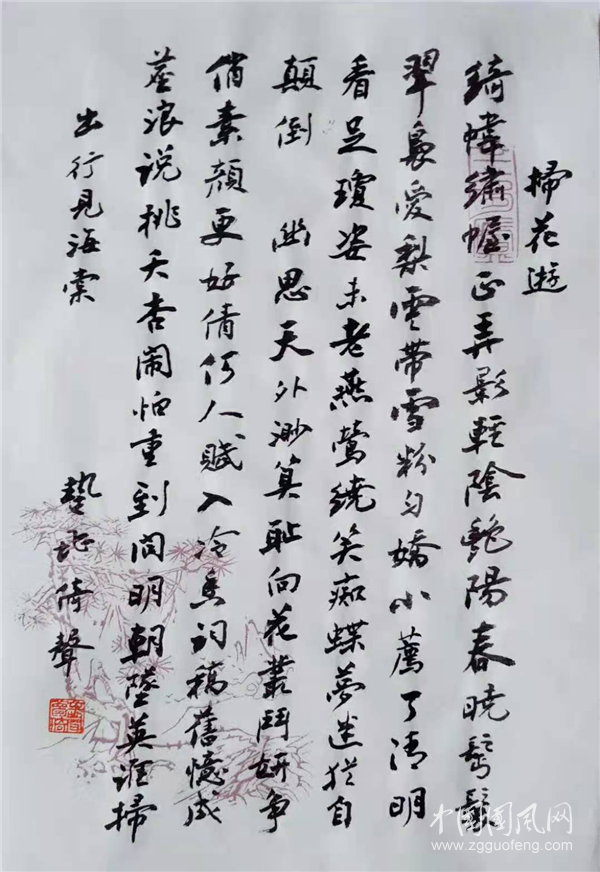 掃花游
綺幃繡幄正弄影輕陰艷陽春曉鬌鬟
翠裊愛梨雲帶雪粉勻嬌小薦了清明
看足瓊姿未老燕鶯繞笑痴蝶夢迷猶自
顛倒 幽思天外渺算耻向花叢鬥妍争
俏素顏更好倩何人賦入冷香词稿舊憶成
塵浪说桃夭杏闹怕重到问明朝墜英誰掃
出行見海棠
 倚聲
中国国风网
www.zgguofeng.com